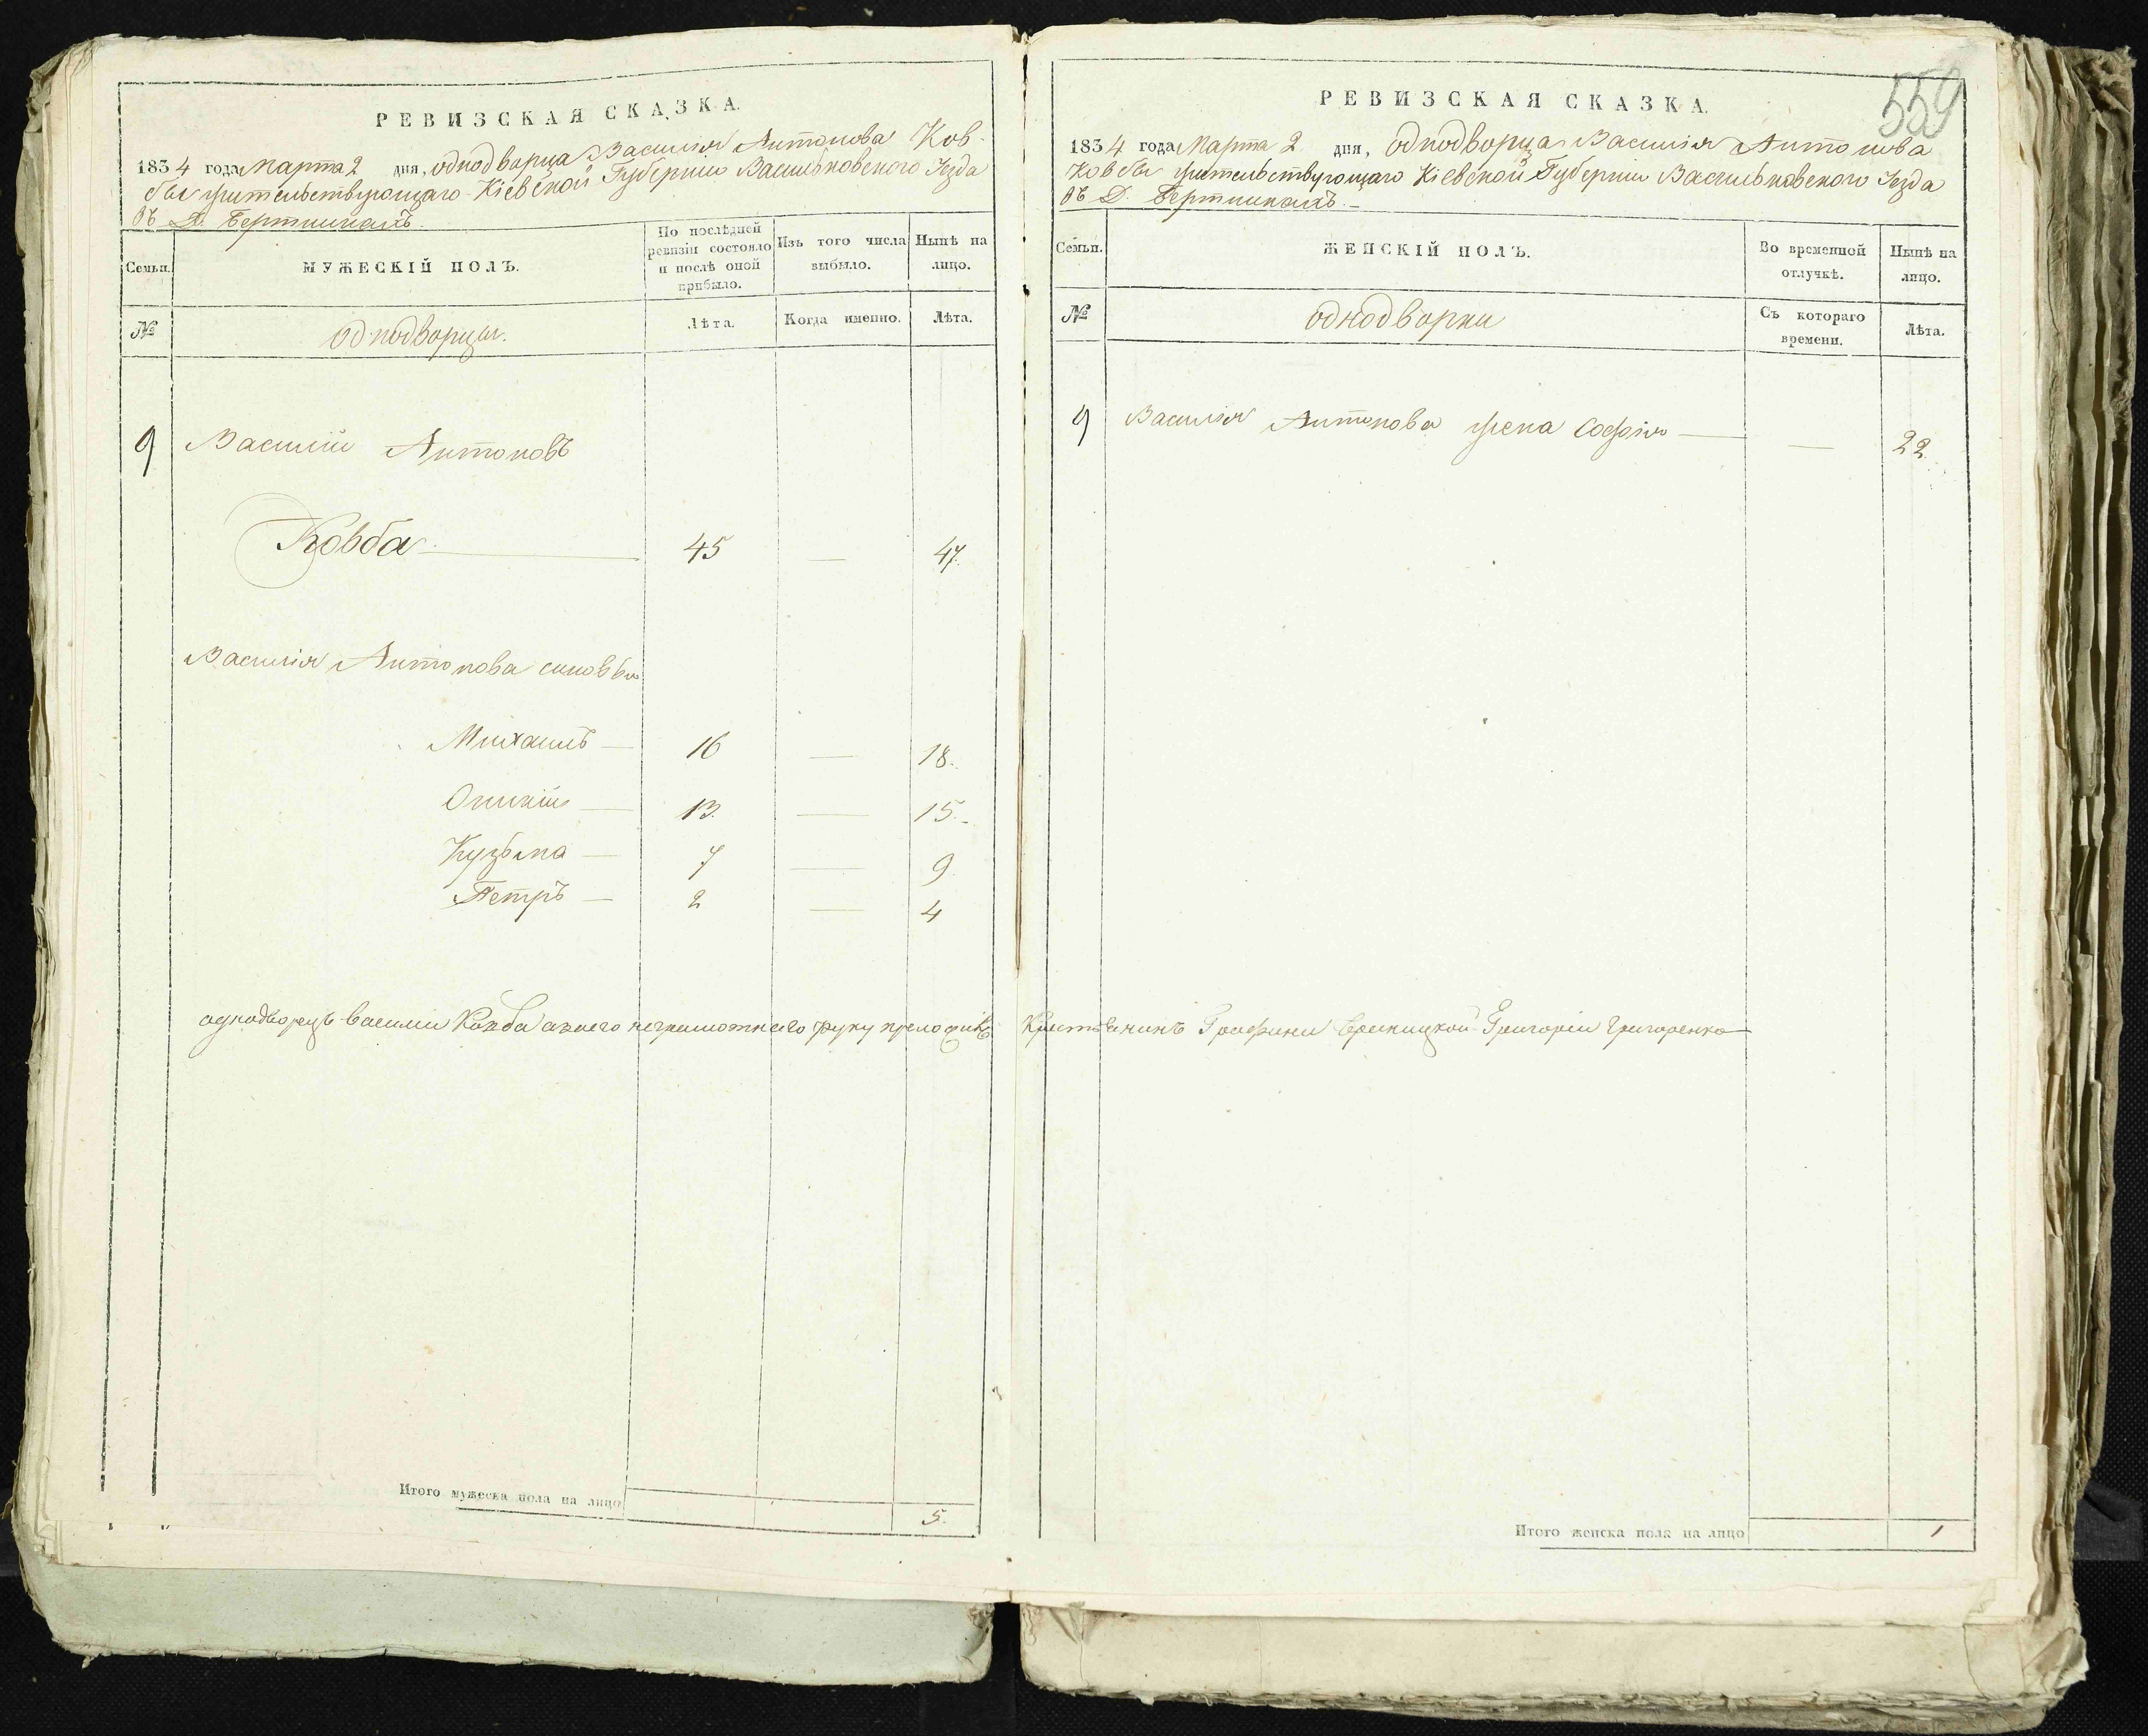 РЕВИЗСКАЯ СКАЗКА.
1834 года Марта 2 дня, однодворца Василія Антонова Ков-
бы жительствующаго Кіевской Губерніи Васильковского Уезда
въ Д.
Семьи.
МУЖЕСКІЙ ПОЛЪ.
По послѣдней ревизіи состояло и послѣ оной прибыло.
Изъ того числа выбыло.
Нынѣ на лицо.
№
однодворцы.
Лѣта.
Когда именно.
Лѣта.
9 Василій Антоновъ
Ковба 45 — 47.
Василія Антонова сыновья
Михаилъ — 16 — 18.
13. — 15.
Кузьма — 7 — 9.
Петръ — 2 — 4
однодворецъ василии Ковба а заего неграмотнаго руку приложилъ
Итого мужеска пола на лицо 5.
559
РЕВИЗСКАЯ СКАЗКА.
1834 года Марта 2 дня, однодворца Василія Антонова
Ковбы жительствующаго Кіевской Губерніи Васильковского Уезда
въ Д.
Семьи.
ЖЕНСКІЙ ПОЛЪ.
Во временной отлучкѣ.
Нынѣ на лицо.
№
однодворки
Съ котораго времени.
Лѣта.
9 Василія Антонова жена Софія — — 22.
Крестьянинъ Графини Браницкой Григорій Григоренко
Итого женска пола на лицо 1